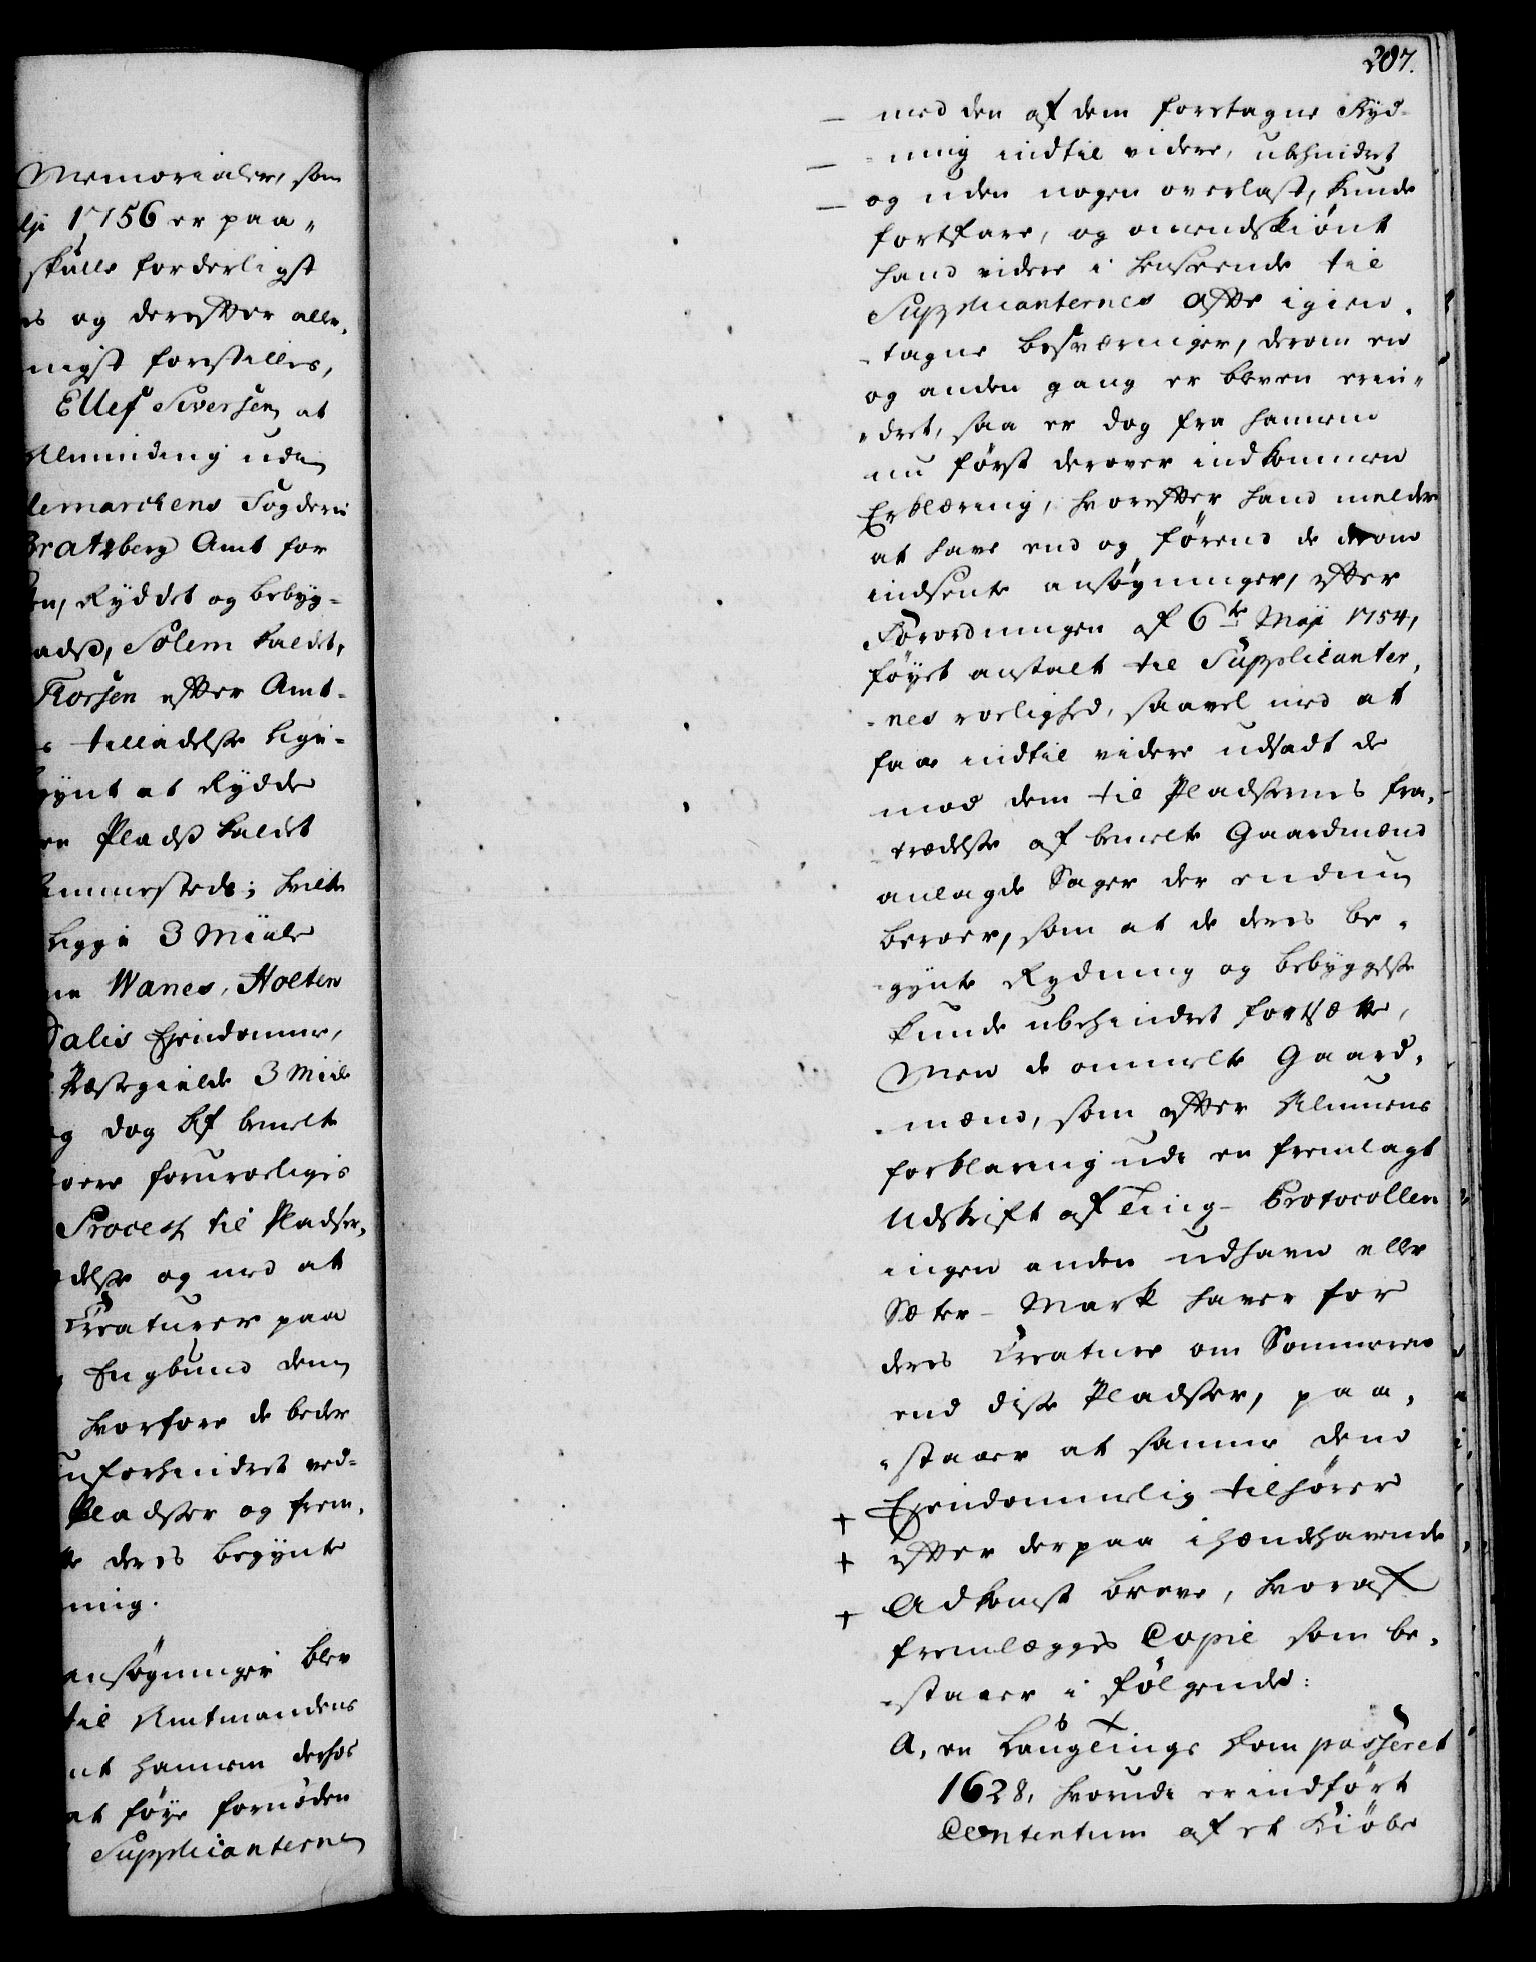 Memorialer, som
1756 er paa„
skulle forderligst
es og derefter aller„
nigst forestilles,
Ellef Siversen at
Alminding udi
lemarchens Fogderie
Bratsberg Amt for
en, Ryddet og bebyg-
ads, Solem kaldet,
Torsen efter Amt-
tilladelse lige-
gynt at Rydde
en Plads kaldet
sammesteds; hvilke
ligge 3 Miile
Wanes, Holten
Dalis Eyendomme,
Præstegielde 3 Miile
og dog af bemelte
foruroeliges
Process til Pladser„
delse og med at
Creaturer paa
Engbund dem
hvorfore de beder
uforhindret ved-
Pladser og frem„
deres begynte
ning.
ansøgninger blev
til Amtmandens
at hannem derhos
at føye fornøden
Supplicanternes
207.
med den af dem foretagne Ryd-
-ning indtil videre, ubehindret
og uden nogen overlast, kunde
fortfare, og omendskiønt
hand videre i henseende til
Supplicanternes ofte igien„
-tagne besværinger, derom en
og anden gang er bleven erin„
„dret, saa er dog fra hannem
nu først derover indkommen
Erklæring, hvorefter hand melder
at have end og førend de derom
indsente ansøgninger, efter
Forordningen af 6te Maji 1754,
føyet anstalt til Supplicanter„
-nes roelighed, saavel med at
faae indtil videre udsadt de
mod dem til Pladsernes fra„
-trædelse af bemelte Gaardmænd
anlagde Sager der endnu
beroer, som at de deres be„
-gynte Rydning og bebyggelse
kunde ubehindret fortsætte,
Men de ommelte Gaard„
-mænd, som efter Almuens
forklaring udi en fremlagt
Udskrift af Ting-Protocollen
ingen anden udhavn eller
Sæter-Mark haver for
deres Creature om Sommeren
end disse Pladser, paa„
„staaer at samme dem
Eyendommelig tilhører
efter derpaa ihændehavende
Adkomst breve, hvoraf
fremlægges Copie som be„
-staaer i følgende:
A, en Laugtings Dom passeret
1628, hvorudi er indført
Contentum af et Kiøbe